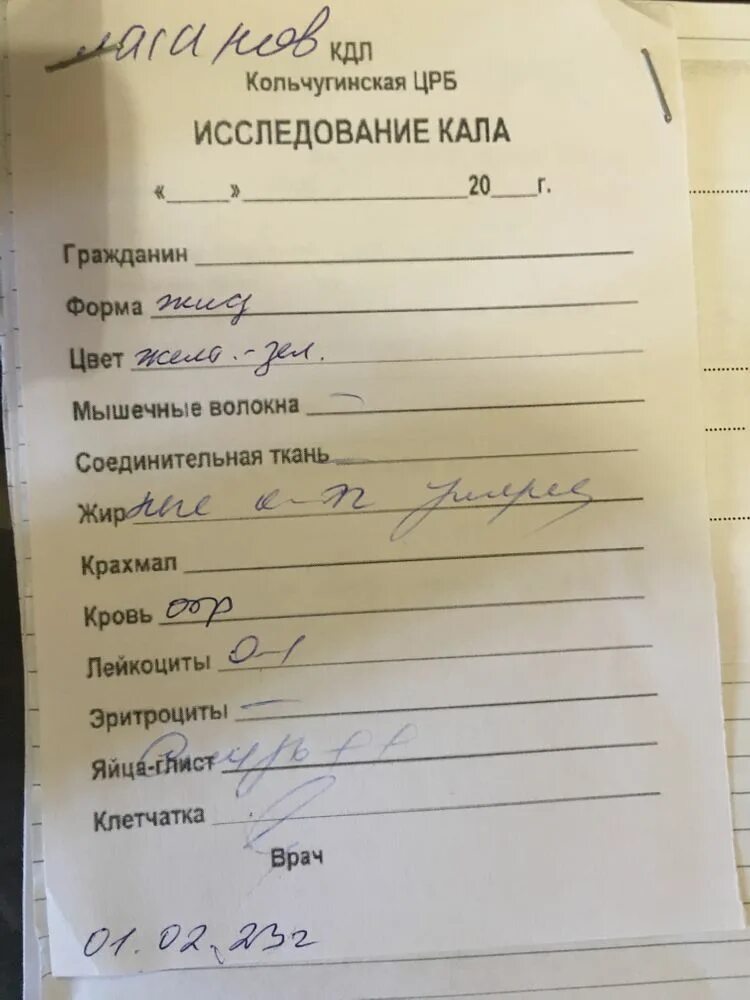 КДЛ
Кольчугинская ЦРБ
ИССЛЕДОВАНИЕ КАЛА
«____»____________20___г.
Гражданин
Форма жид
Цвет желт.-зел.
Мышечные волокна –
Соединительная ткань
Жирные к-ты умерен
Крахмал
Кровь отр
Лейкоциты 0-1
Эритроциты –
Яйца-глист
Клетчатка
Врач
01.02.23г